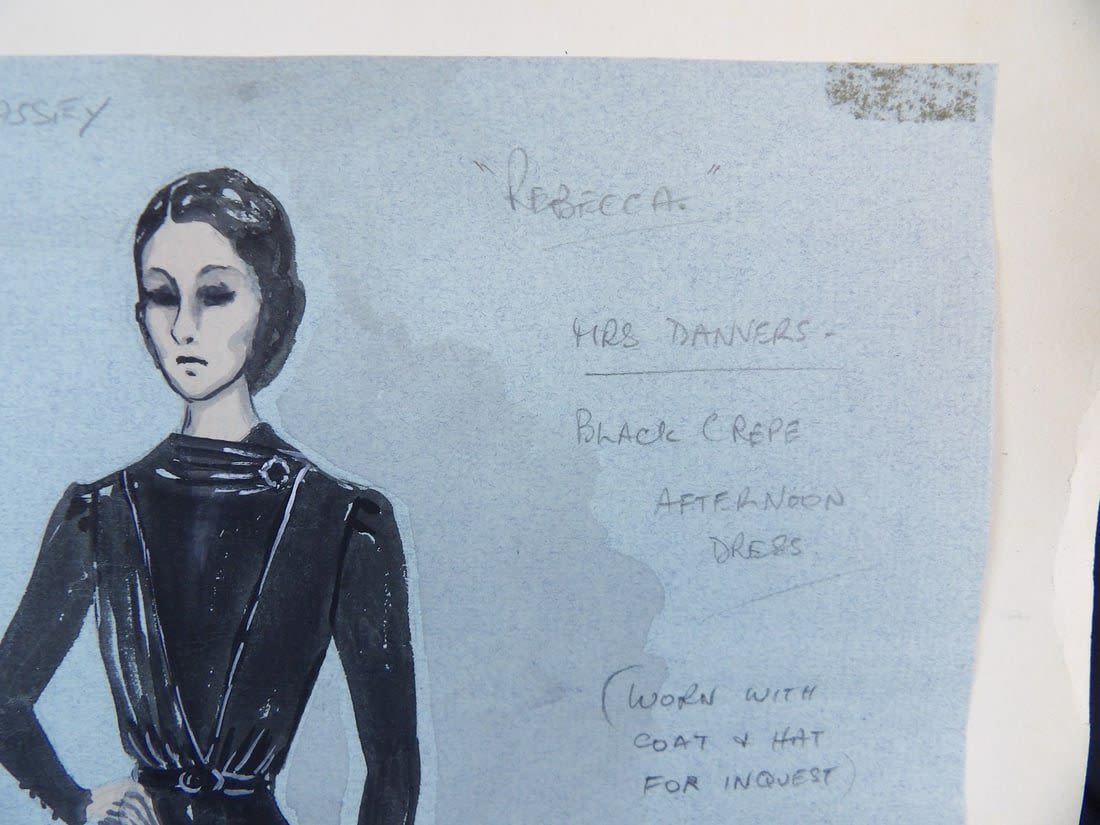 ASSEY
"REBECCA."
MRS DANVERS -
BLACK CREPE
AFTERNOON
DRESS
(WORN WITH
COAT & HAT
FOR INQUEST)